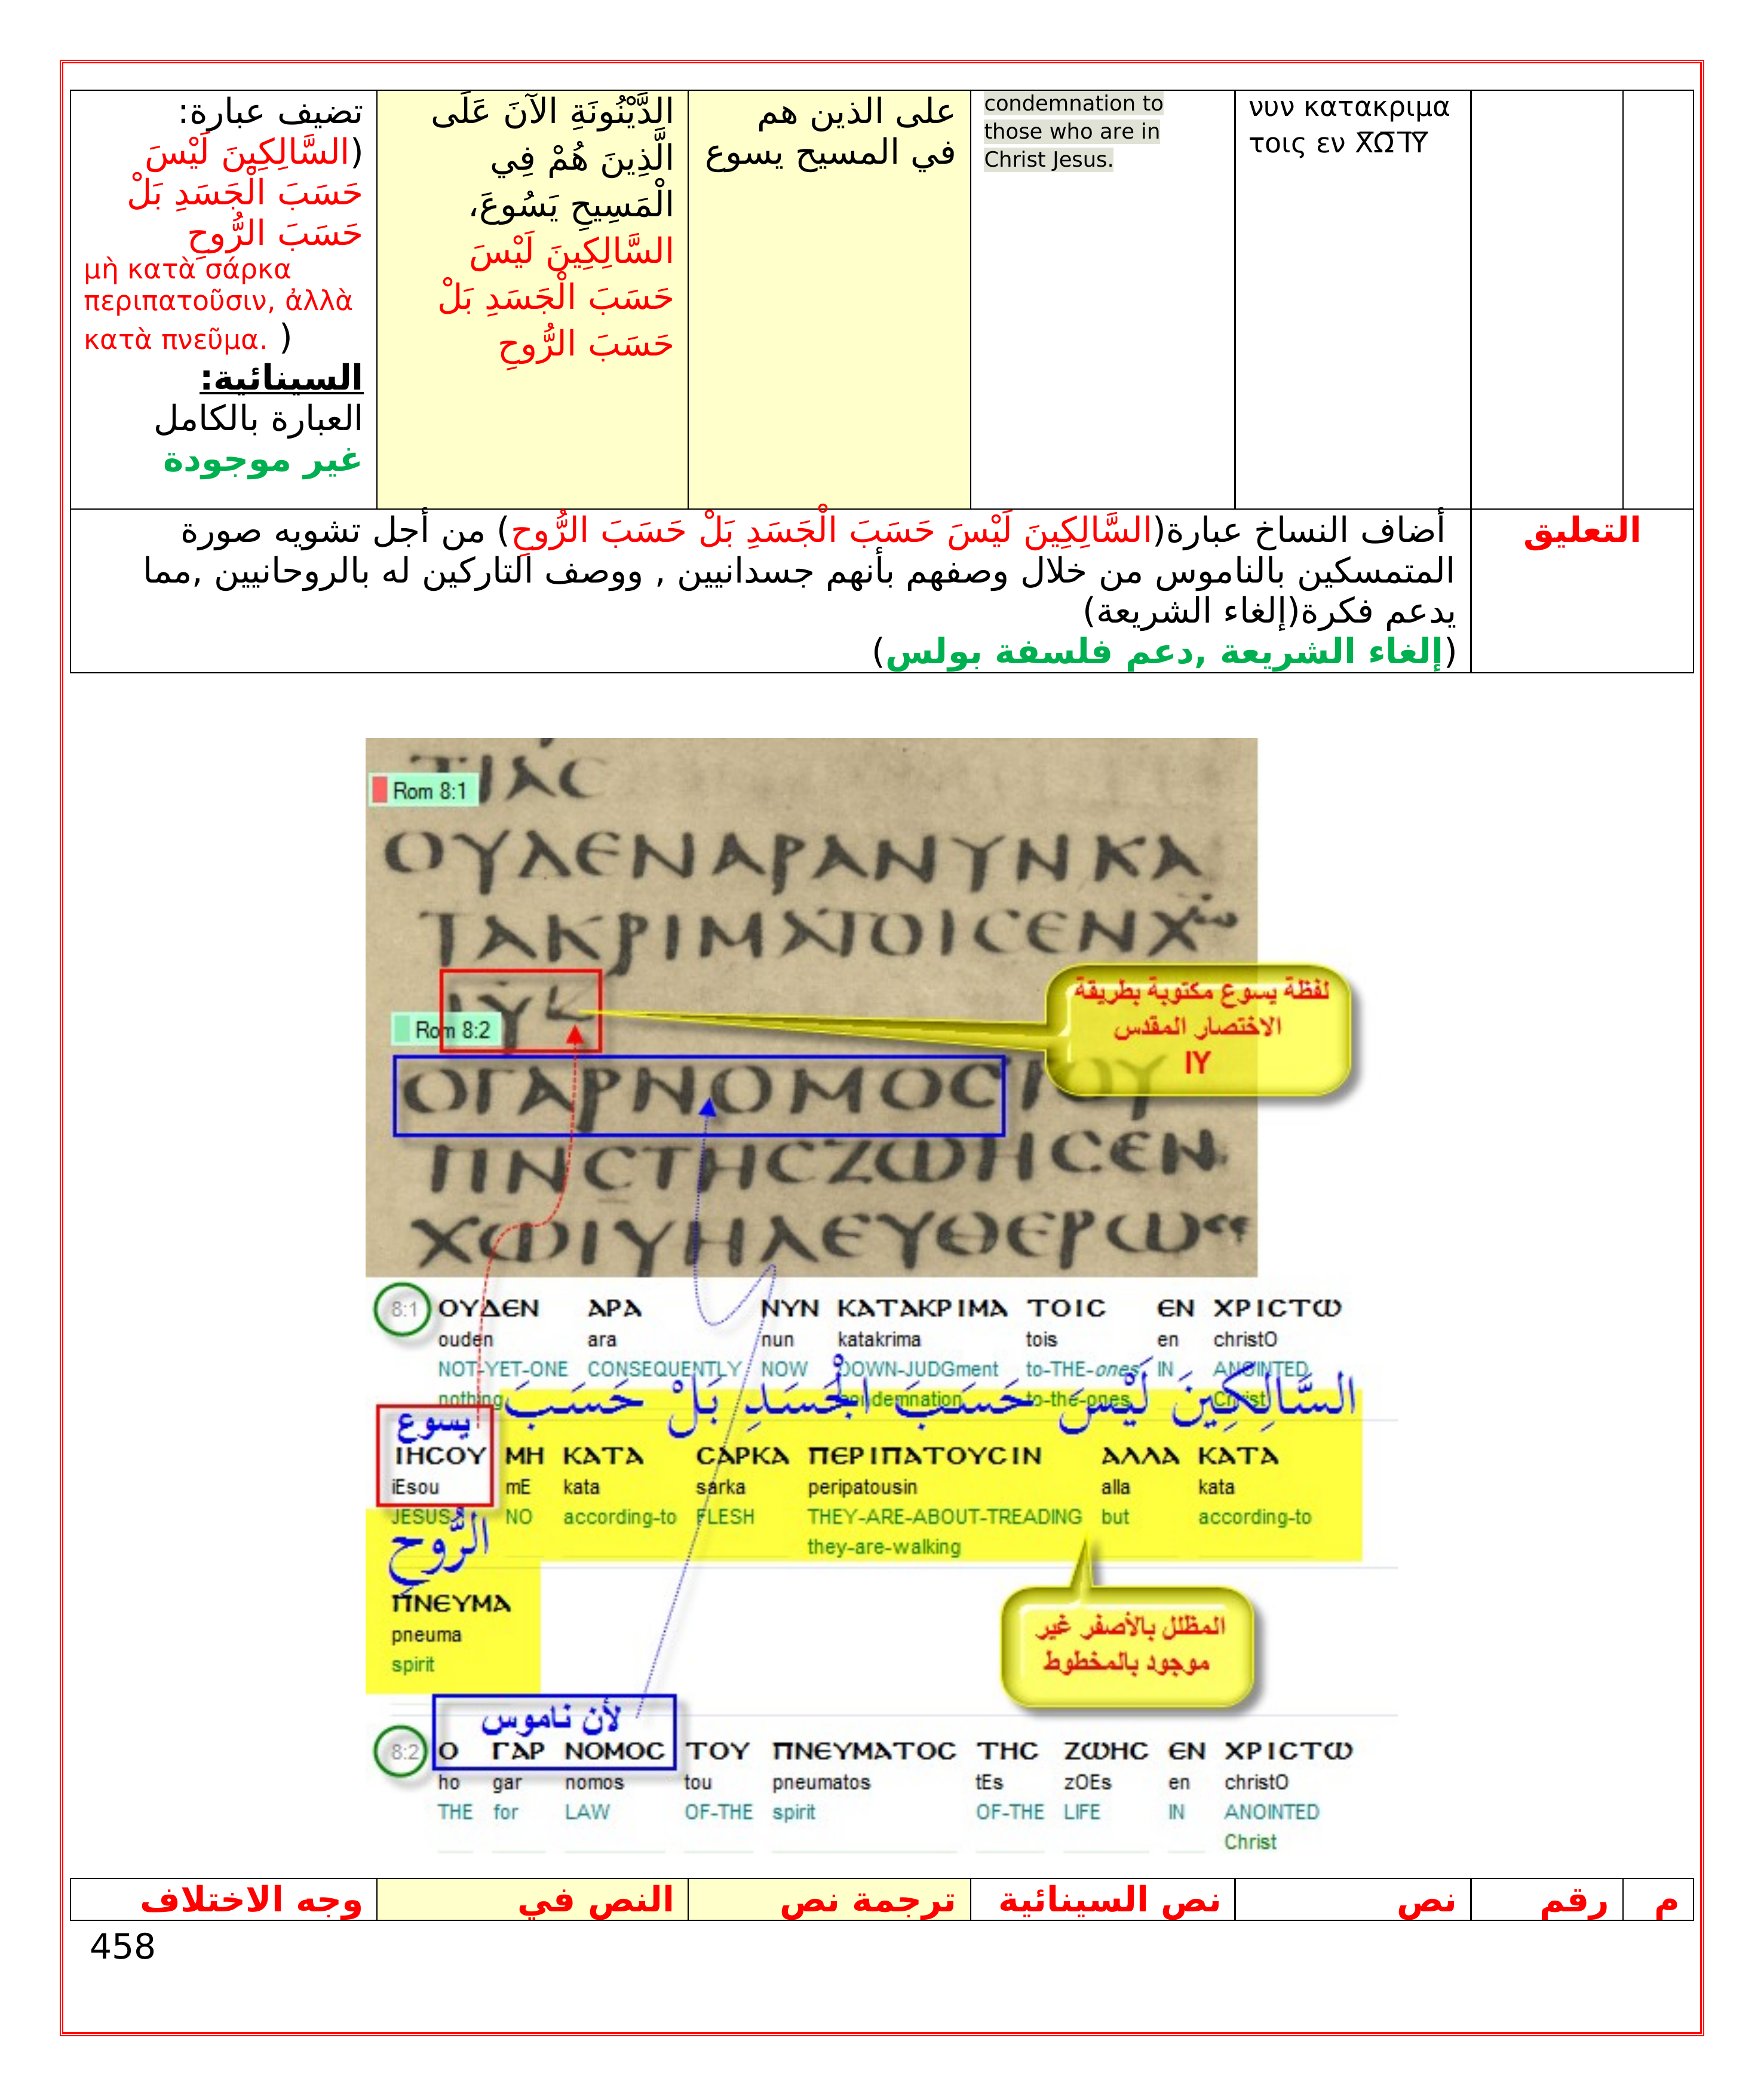 νυν κατακριμα
τοις εν Χ̅Ω̅ Ι̅Υ̅
condemnation to
those who are in
Christ Jesus.
على الذين هم
في المسيح يسوع
الدَّيْنُونَةِ الآنَ عَلَى
الَّذِينَ هُمْ فِي
الْمَسِيحِ يَسُوعَ،
السَّالِكِينَ لَيْسَ
حَسَبَ الْجَسَدِ بَلْ
حَسَبَ الرُّوحِ
تضيف عبارة:
(السَّالِكِينَ لَيْسَ
حَسَبَ الْجَسَدِ بَلْ
حَسَبَ الرُّوحِ
μὴ κατὰ σάρκα
περιπατοῦσιν, ἀλλὰ
κατὰ πνεῦμα. (
السينائية:
العبارة بالكامل
غير موجودة
التعليق
أضاف النساخ عبارة(السَّالِكِينَ لَيْسَ حَسَبَ الْجَسَدِ بَلْ حَسَبَ الرُّوحِ) من أجل تشويه صورة
المتمسكين بالناموس من خلال وصفهم بأنهم جسدانيين , ووصف التاركين له بالروحانيين ,مما
يدعم فكرة(إلغاء الشريعة)
(إلغاء الشريعة ,دعم فلسفة بولس)
Rom 8:1
ΤΙΑϹ
ΟΥΔΕΝΑΡΑΝΥΝΚΑ
ΤΑΚΡΙΜΑΤΟΙϹΕΝΧω
ΙΥ
Rom 8:2
ΟΓΑΡΝΟΜΟϹΤΟΥ
ΠΝϹΤΗϹΖΩΗϹΕΝ
ΧΩΙΥΗΛΕΥΘΕΡΩϹΕ
لفظة يسوع مكتوبة بطريقة
الاختصار المقدس
IY
8:1 ΟΥΔΕΝ ΑΡΑ ΝΥΝ ΚΑΤΑΚΡΙΜΑ ΤΟΙϹ ΕΝ ΧΡΙϹΤΩ
ouden ara nun katakrima tois en christO
NOT-YET-ONE CONSEQUENTLY NOW DOWN-JUDGment to-THE-ones IN ANOINTED
nothing condemnation to-the-ones Christ
السَّالِكِينَ لَيْسَ حَسَبَ الْجَسَدِ بَلْ حَسَبَ
يسوع
ΙΗϹΟΥ ΜΗ ΚΑΤΑ ϹΑΡΚΑ ΠΕΡΙΠΑΤΟΥϹΙΝ ΑΛΛΑ ΚΑΤΑ
iEsou mE kata sarka peripatousin alla kata
JESUS NO according-to FLESH THEY-ARE-ABOUT-TREADING but according-to
they-are-walking
الرُّوحِ
ΠΝΕΥΜΑ
pneuma
spirit
المظلل بالأصفر غير
موجود بالمخطوط
لأن ناموس
8:2 Ο ΓΑΡ ΝΟΜΟϹ ΤΟΥ ΠΝΕΥΜΑΤΟϹ ΤΗϹ ΖΩΗϹ ΕΝ ΧΡΙϹΤΩ
ho gar nomos tou pneumatos tEs zOEs en christO
THE for LAW OF-THE spirit OF-THE LIFE IN ANOINTED
Christ
م رقم نص نص السينائية ترجمة نص النص في وجه الاختلاف
458